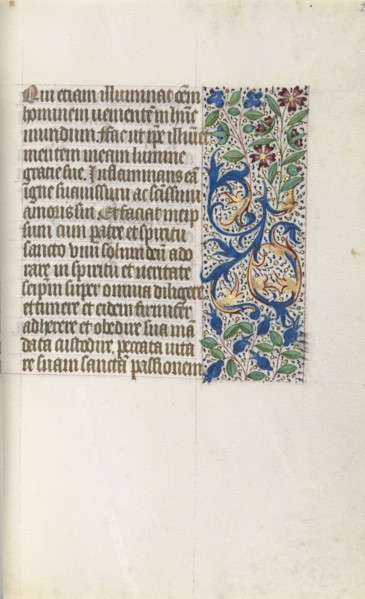 Qui etiam illuminas oēm
hominem uenientē in hūc
mundum. Fac ut ip̄e illuminet
mentem meam lumine
gracie sue. Inflammans eā
igne suauissimi ac sc̄issimi
amoris sui. Et faciat me ip
sum cum patre et spiritu
sancto vnū solum deū ado
rare in spiritu et ueritate
seipm̄ super omnia diligere
et timere et eidem firmiter
adherere et obedire sua mā
data custodire. peccata uita
re suam sanctā passionem